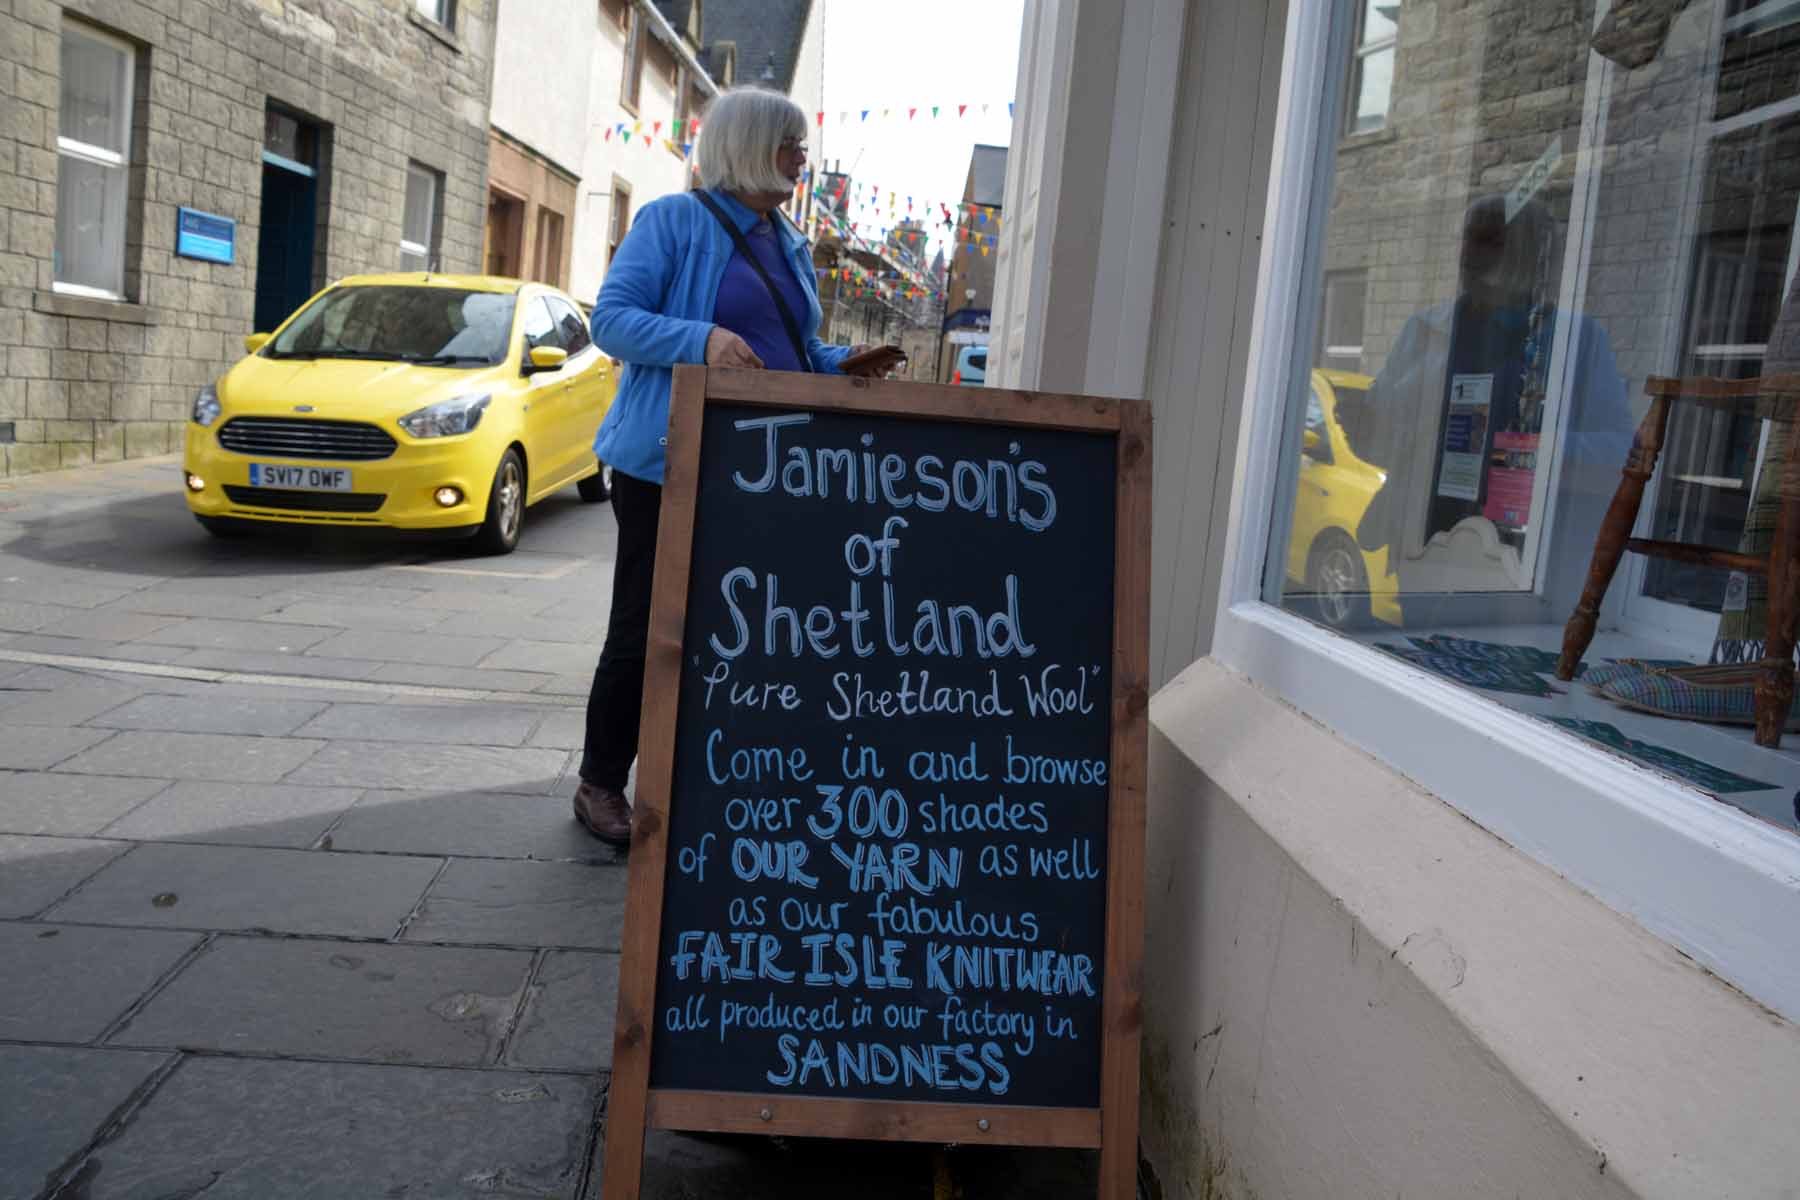 Jamieson's
of
Shetland
"Pure Shetland Wool"
Come in and browse
over 300 shades
of OUR YARN as well
as our fabulous
FAIR ISLE KNITWEAR
all produced in our factory in
SANDNESS
SV17 OWF